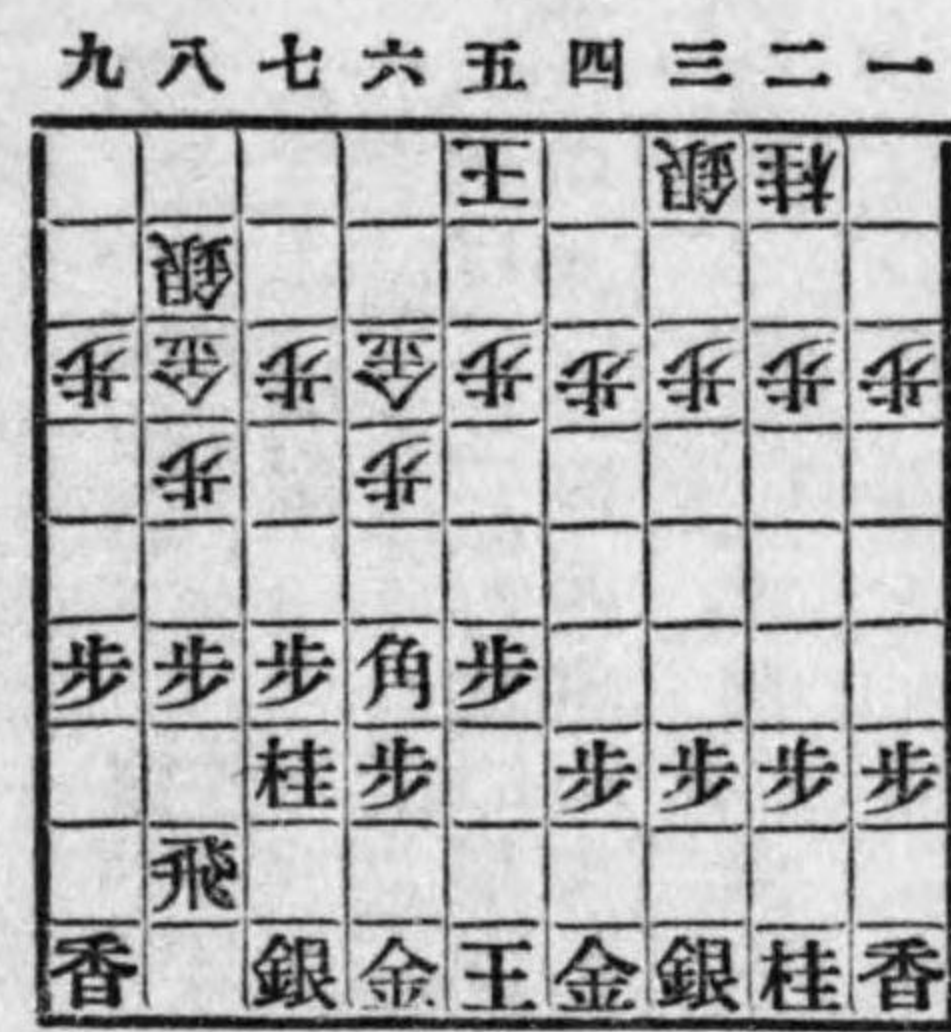 九八七六五四三二一
王銀桂
銀
歩金歩金歩歩歩歩歩
歩歩
歩歩歩角歩
桂歩歩歩歩歩
飛
香銀金王金銀桂香